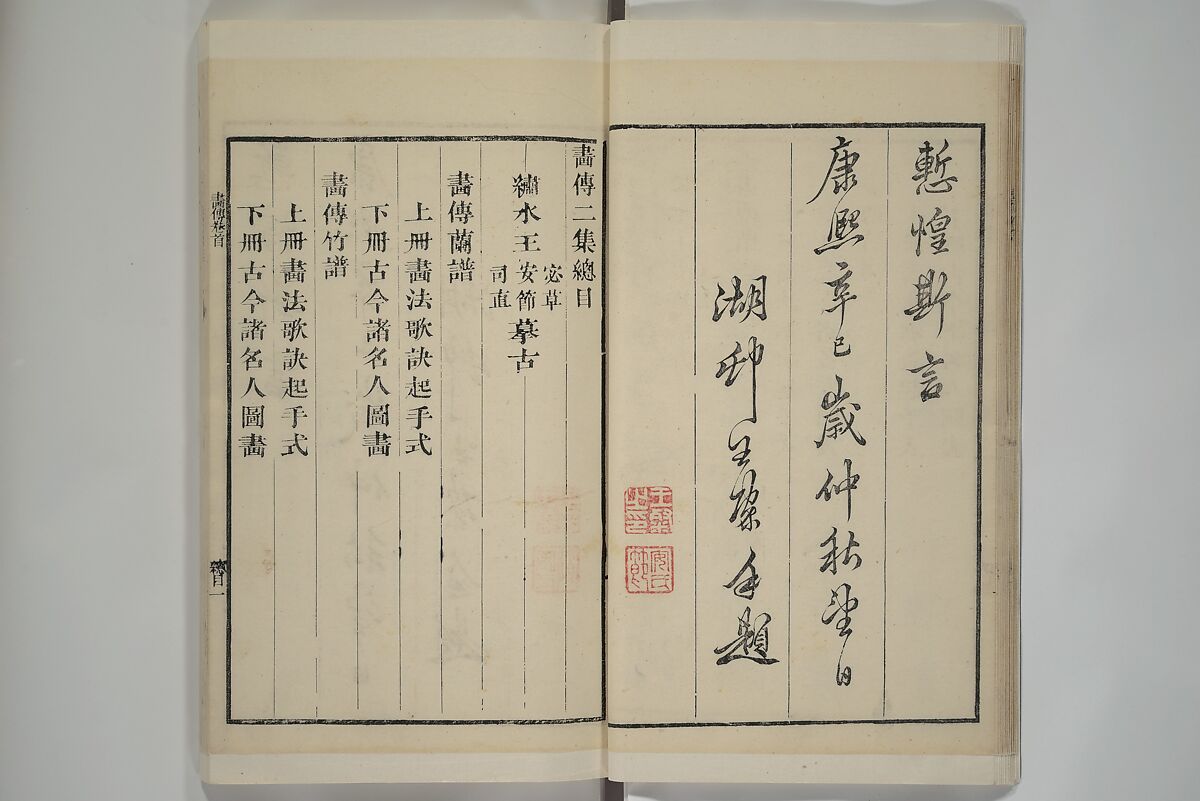 慙惶斯言
康熙辛巳歲仲秋望日
湖邨王槩手題
畫傳二集總目
繡水王
宓草
安節
司直
摹古
畫傳蘭譜
上冊畫法歌訣起手式
下冊古今諸名人圖畫
畫傳竹譜
上冊畫法歌訣起手式
下冊古今諸名人圖畫
畫傳卷首
總目一